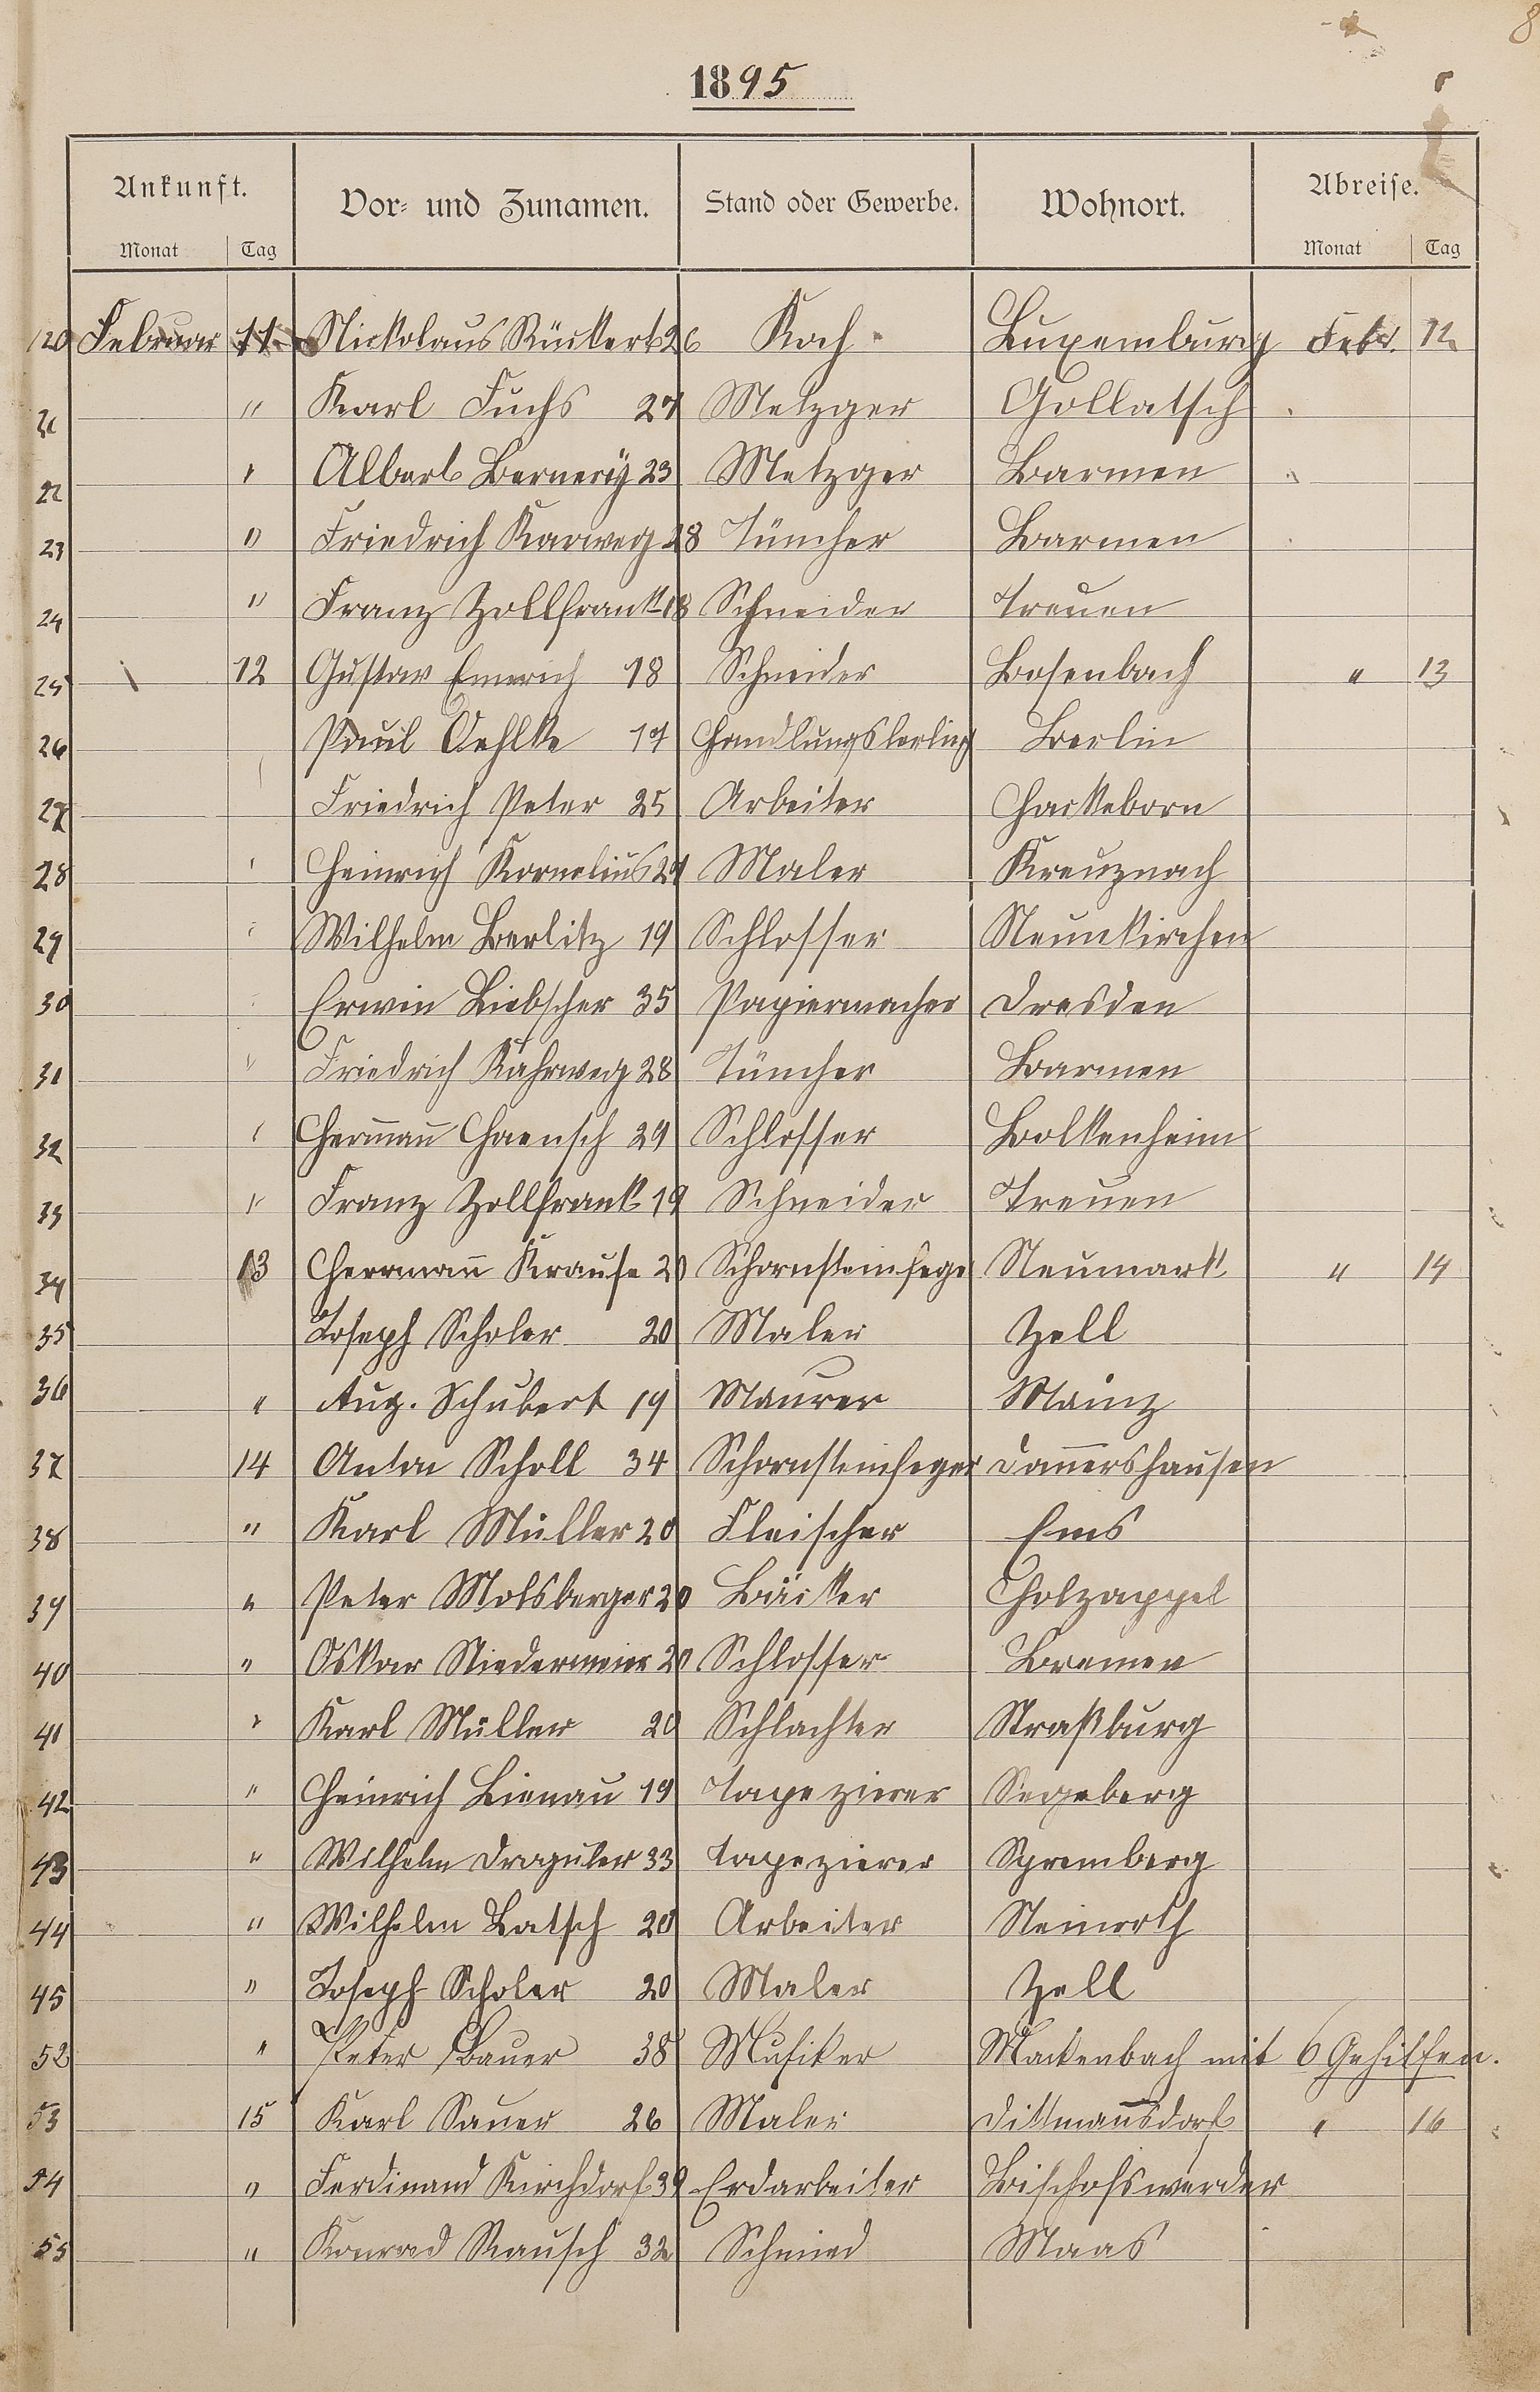 8
1895
Ankunft. Vor- und Zunamen. Stand oder Gewerbe. Wohnort. Abreise.
Monat Tag Monat Tag
120 Februar 11 Nickolaus Rückert 26 Koch Luxemburg Febr. 12
21 " Karl Fuchs 27 Metzger Gollatsch
22 " Albert 23 Metzger Barmen
23 " Friedrich Karweg 28 Tüncher Barmen
24 " Franz Zollfrank 18 Schneider Treuen
25 12 Gustav Emrich 18 Schneider Bosenbach " 13
26 Paul Oehlke 17 Handlungslerling Berlin
27 Friedrich Peter 25 Arbeiter Hackeborn
28 " Heinrich Kornelius 27 Maler Kreuznach
29 " Wilhelm Berlitz 19 Schlosser Neunkirchen
30 " Erwin Liebscher 35 Papiermacher Dresden
31 " Friedrich Kahrweg 28 Tüncher Barmen
32 " Herman̄ Haensch 29 Schlosser Bolkenheim
33 " Franz Zollfrank 19 Schneider Treuen
34 13 Herrman̄ Krause 20 Schornsteinfege Neumark " 14
35 Joseph Scholer 20 Maler Zell
36 " Aug. Schubert 19 Maurer Mainz
37 14 Anton Scholl 34 Schornsteinfeger Dam̄ershausen
38 " Karl Müller 20 Fleischer Ems
39 " Peter Molsberger 20 Bäcker Holzappel
40 " Oskar Niedermeier 20 Schlosser Bremen
41 " Karl Müller 20 Schlachter Straßburg
42 " Heinrich Lienau 19 Tapezierer Segeberg
43 " Wilhelm Draguler 33 Tapezierer Spremberg
44 " Wilhelm Latsch 20 Arbeiter Steinroth
45 " Joseph Scholer 20 Maler Zell
52 " Peter Bauer 38 Musiker Mackenbach mit 6 Gehilfen.
53 15 Karl Sauer 26 Maler Dittman̄sdorf " 16
54 " Ferdinand Kirchdorf 39 Erdarbeiter Bischofswerder
55 " Konrad Rausch 32 Schmied Maas